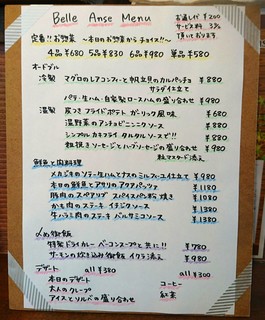 Belle Anse Menu
お通し代 ¥200
サービス料 3%
頂いております
定番!!お惣菜 〜本日のお惣菜からチョイス!!〜
4品¥680 5品¥830 6品¥980 単品¥580
オードブル
冷製 マグロのレアコンフィと帆立貝のカルパッチョ サラダ仕立て ¥880
パテ・生ハム・自家製ロースハムの盛り合わせ ¥980
温製 皮つきフライドポテト ガーリック風味 ¥680
温野菜のアンチョビニンニクソース ¥880
シンプルカキフライ タルタルソースで!! ¥880
粗挽きソーセージとハーブソーセージの盛り合わせ ¥980
粒マスタード添え
鮮魚と肉料理
メカジキのソテー生ハムとナスのミルフィーユ仕立て ¥980
本日の鮮魚とアサリのアクアパッツァ ¥1180
豚肉のスペアリブ スパイス煮焼き ¥1080
かも肉のステーキ イチジクソース ¥1180
牛ハラミ肉のステーキ バルサミコソース ¥1180
〆め御飯
特製ドライカレー ベーコンスープと共に!! ¥980
サーモンの炊き込み御飯 イクラ添え ¥980
デザート all ¥380
本日のデザート
大人のクレープ
アイスとソルベの盛り合わせ
all ¥300
コーヒー
紅茶